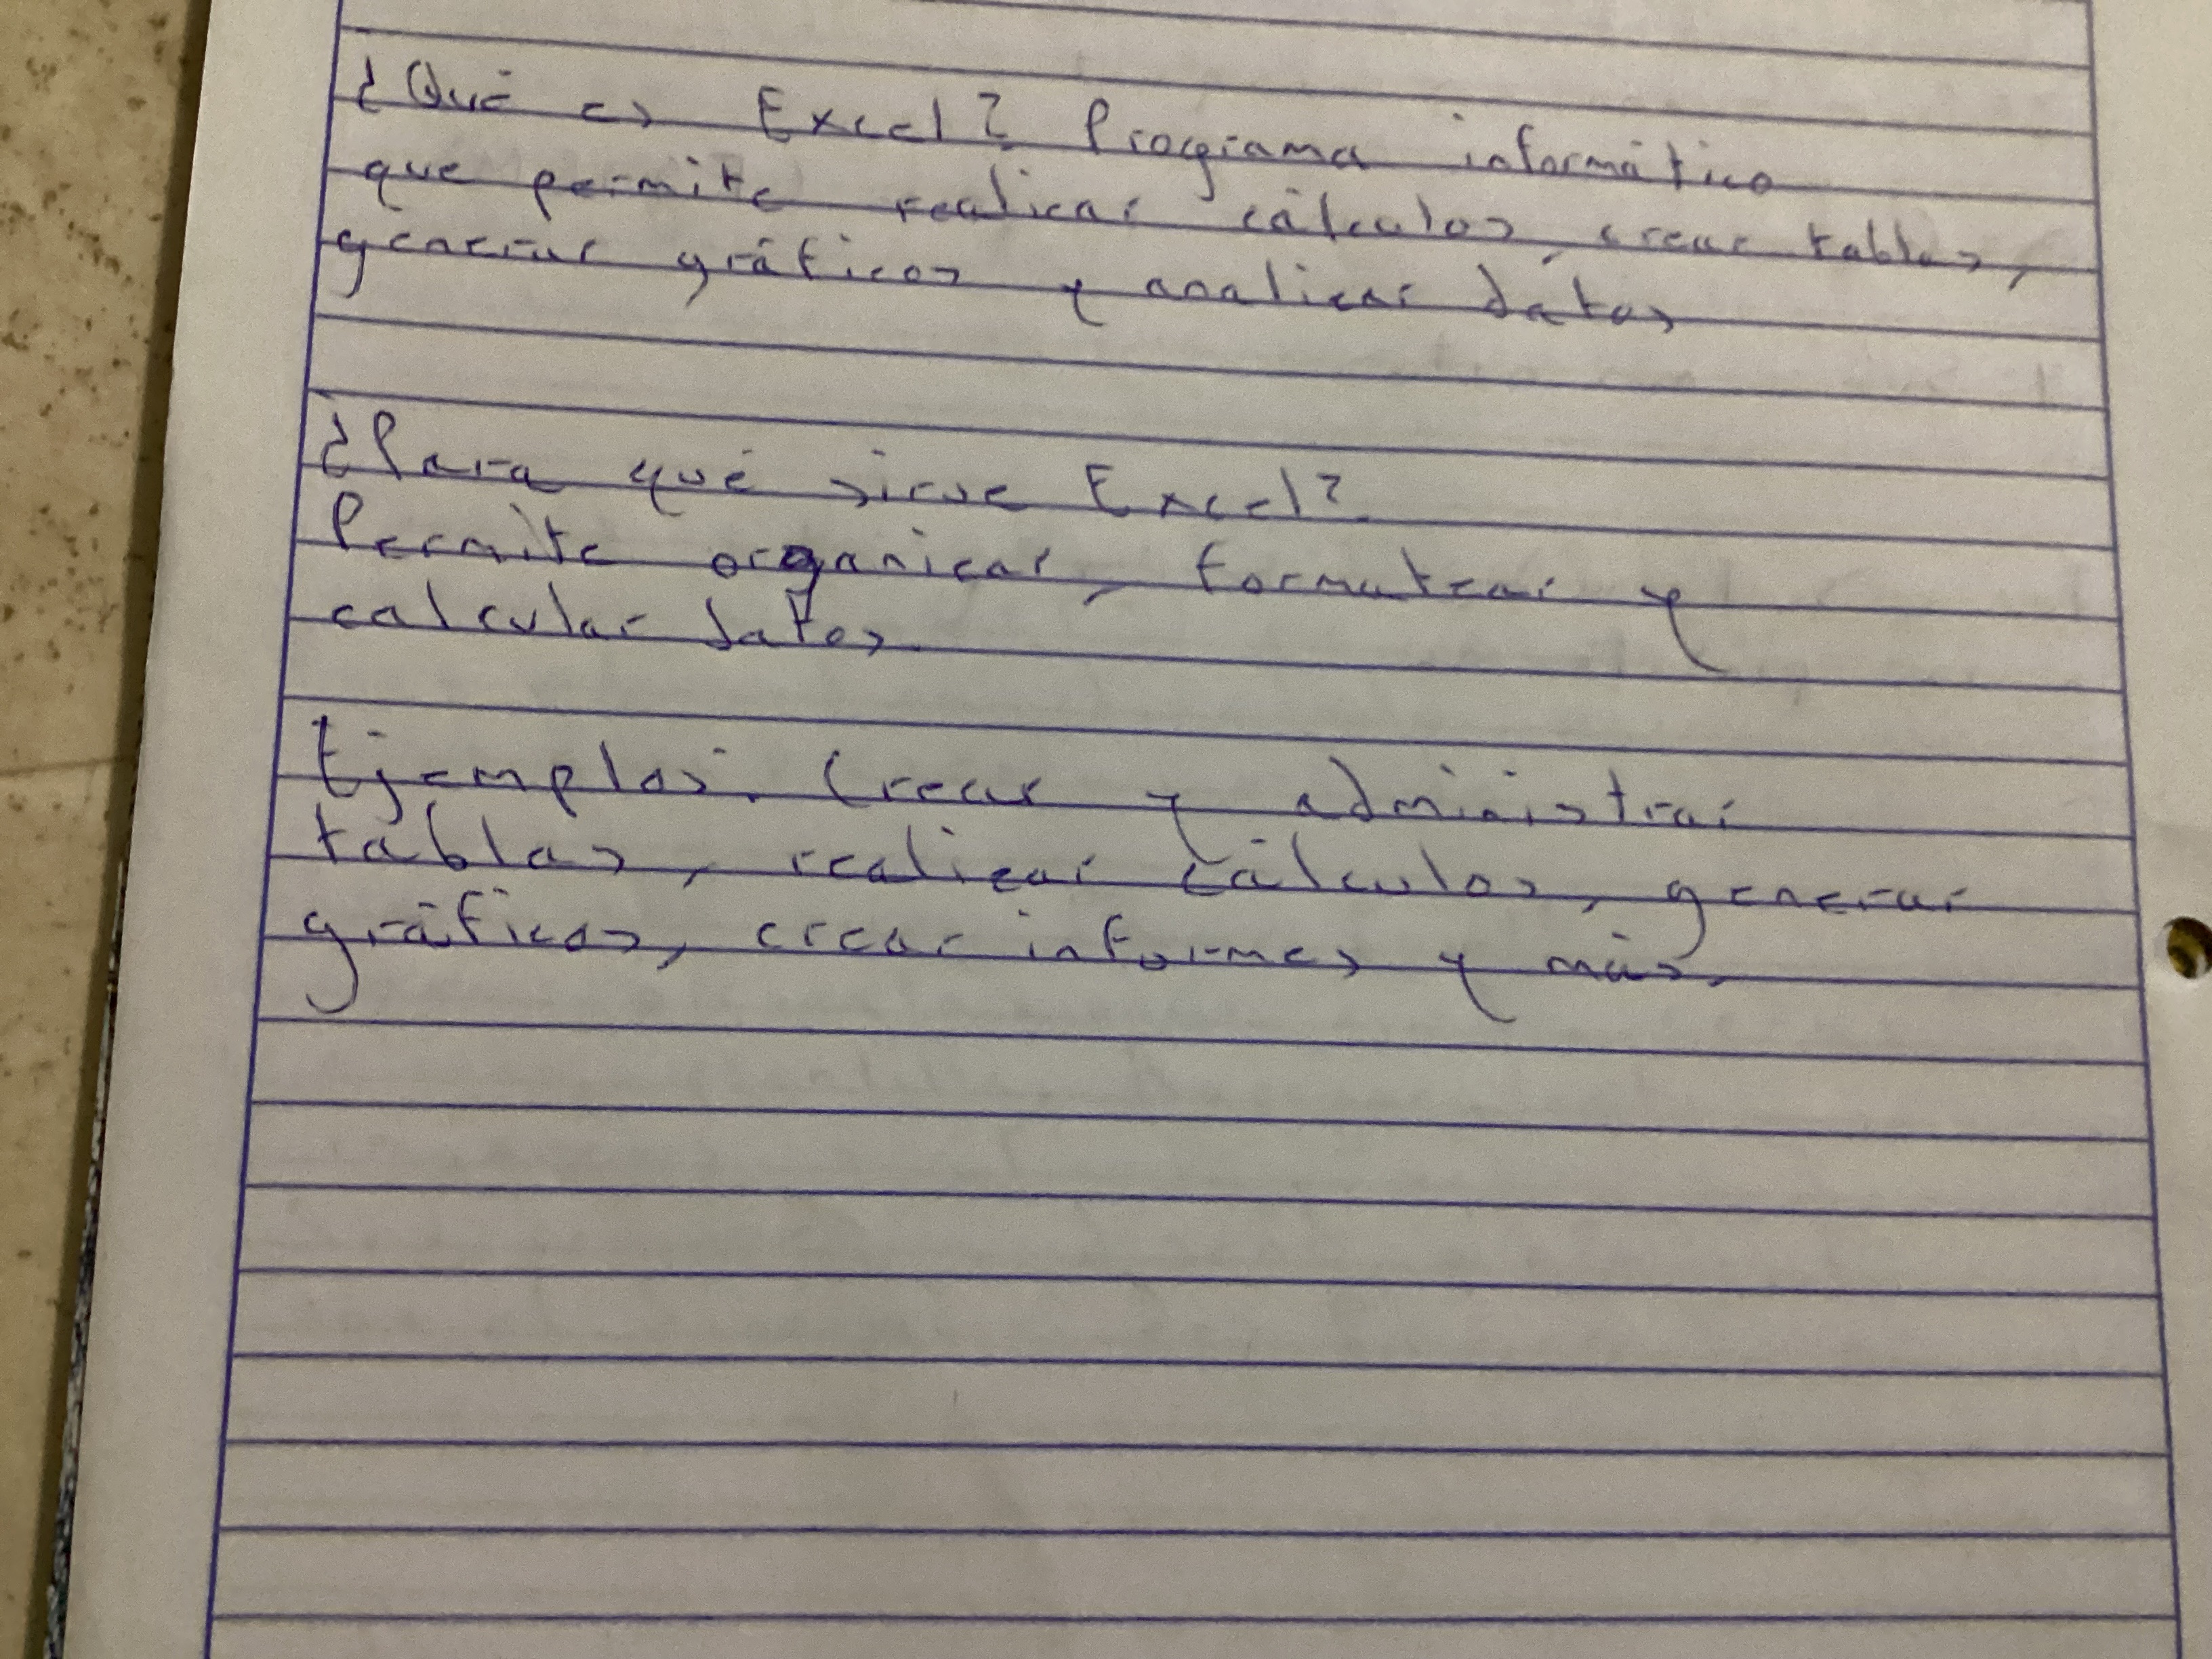 ¿Qué es Excel? Programa informático
que permite realicar cálculos, crear tablas,
generar gráficos y analicar datos
¿Para qué sirve Excel?
Permite organicar, formatear y
calcular datos.
Ejemplos: Crear y administrar
tablas, realicar cálculos, generar
gráficos, crear informes y más.